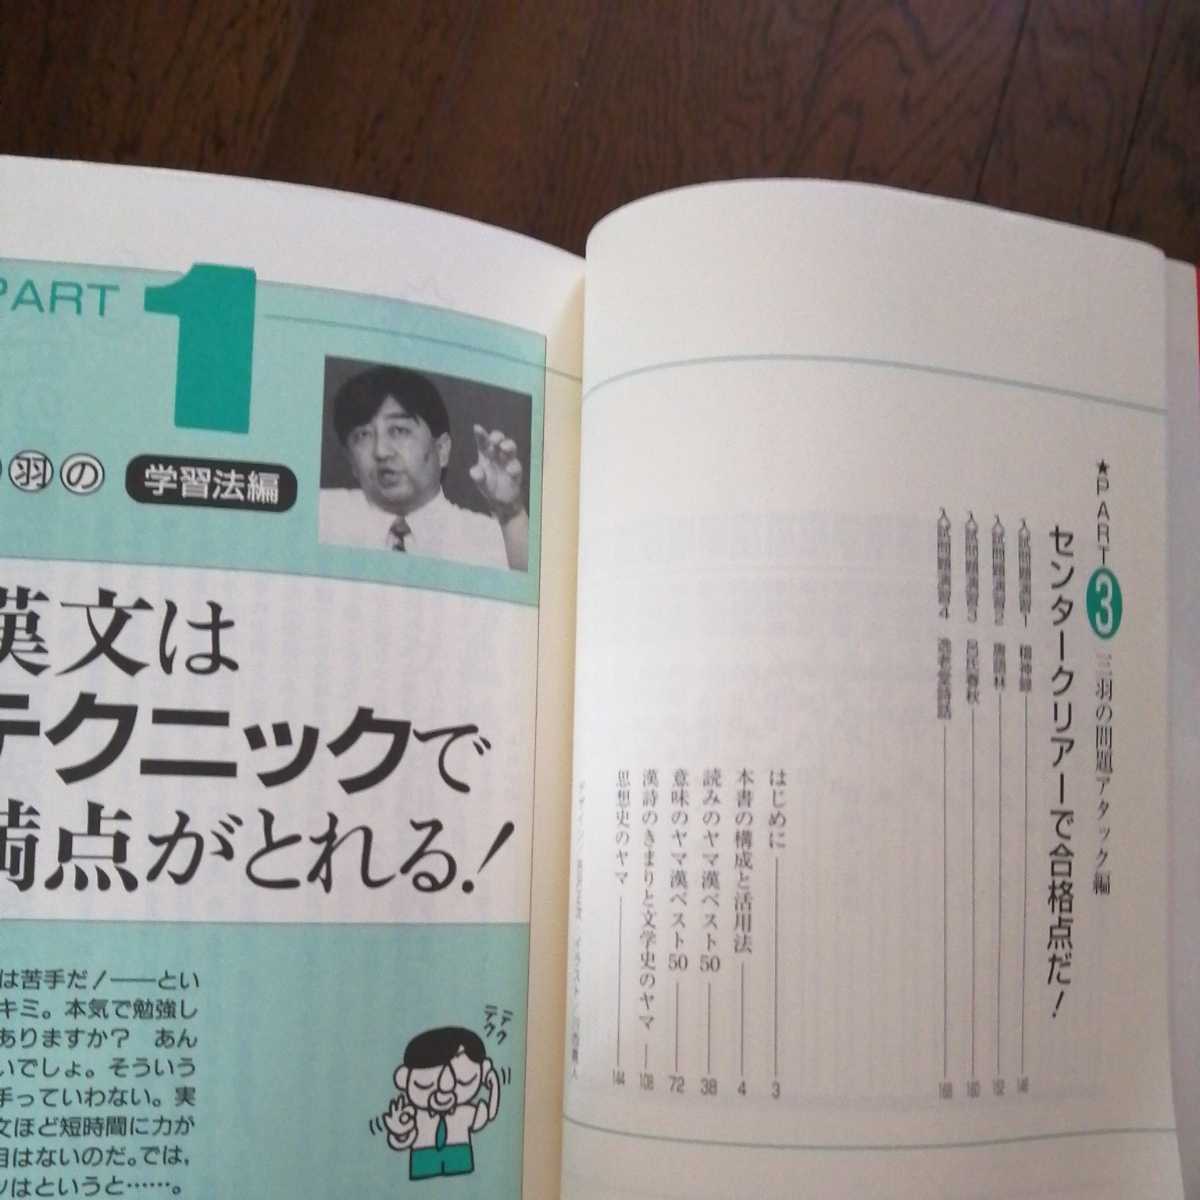 PART 1
羽の 学習法編
漢文は
テクニックで
満点がとれる!
は苦手だ!――とい
キミ。本気で勉強し
ありますか? あん
いでしょ。そういう
手っていわない。実
文ほど短時間に力が
目はないのだ。では,
ツはというと……。
テクテク
★PART3 三羽の問題アタック編
センタークリアーで合格点だ!
入試問題演習1 稽神録 146
入試問題演習2 唐語林 152
入試問題演習3 呂氏春秋 160
入試問題演習4 逸老堂詩話 168
はじめに 3
本書の構成と活用法 4
読みのヤマ漢ベスト50 38
意味のヤマ漢ベスト50 72
漢詩のきまりと文学史のヤマ 108
思想史のヤマ 144